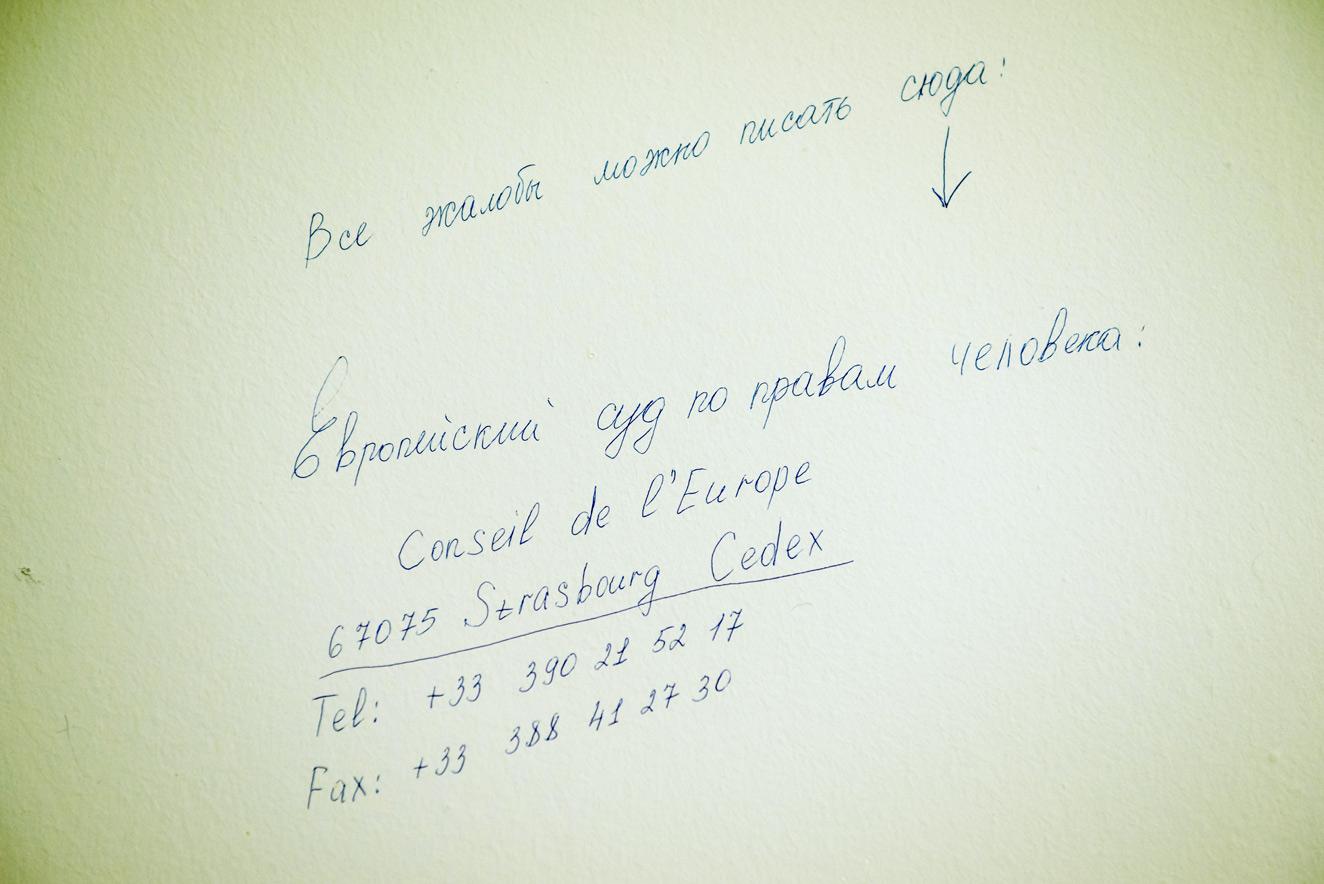 Все жалобы можно писать сюда:
Европейский суд по правам человека:
Conseil de l'Europe
67075 Strasbourg Cedex
Tel: +33 390 21 52 17
Fax: +33 388 41 27 30